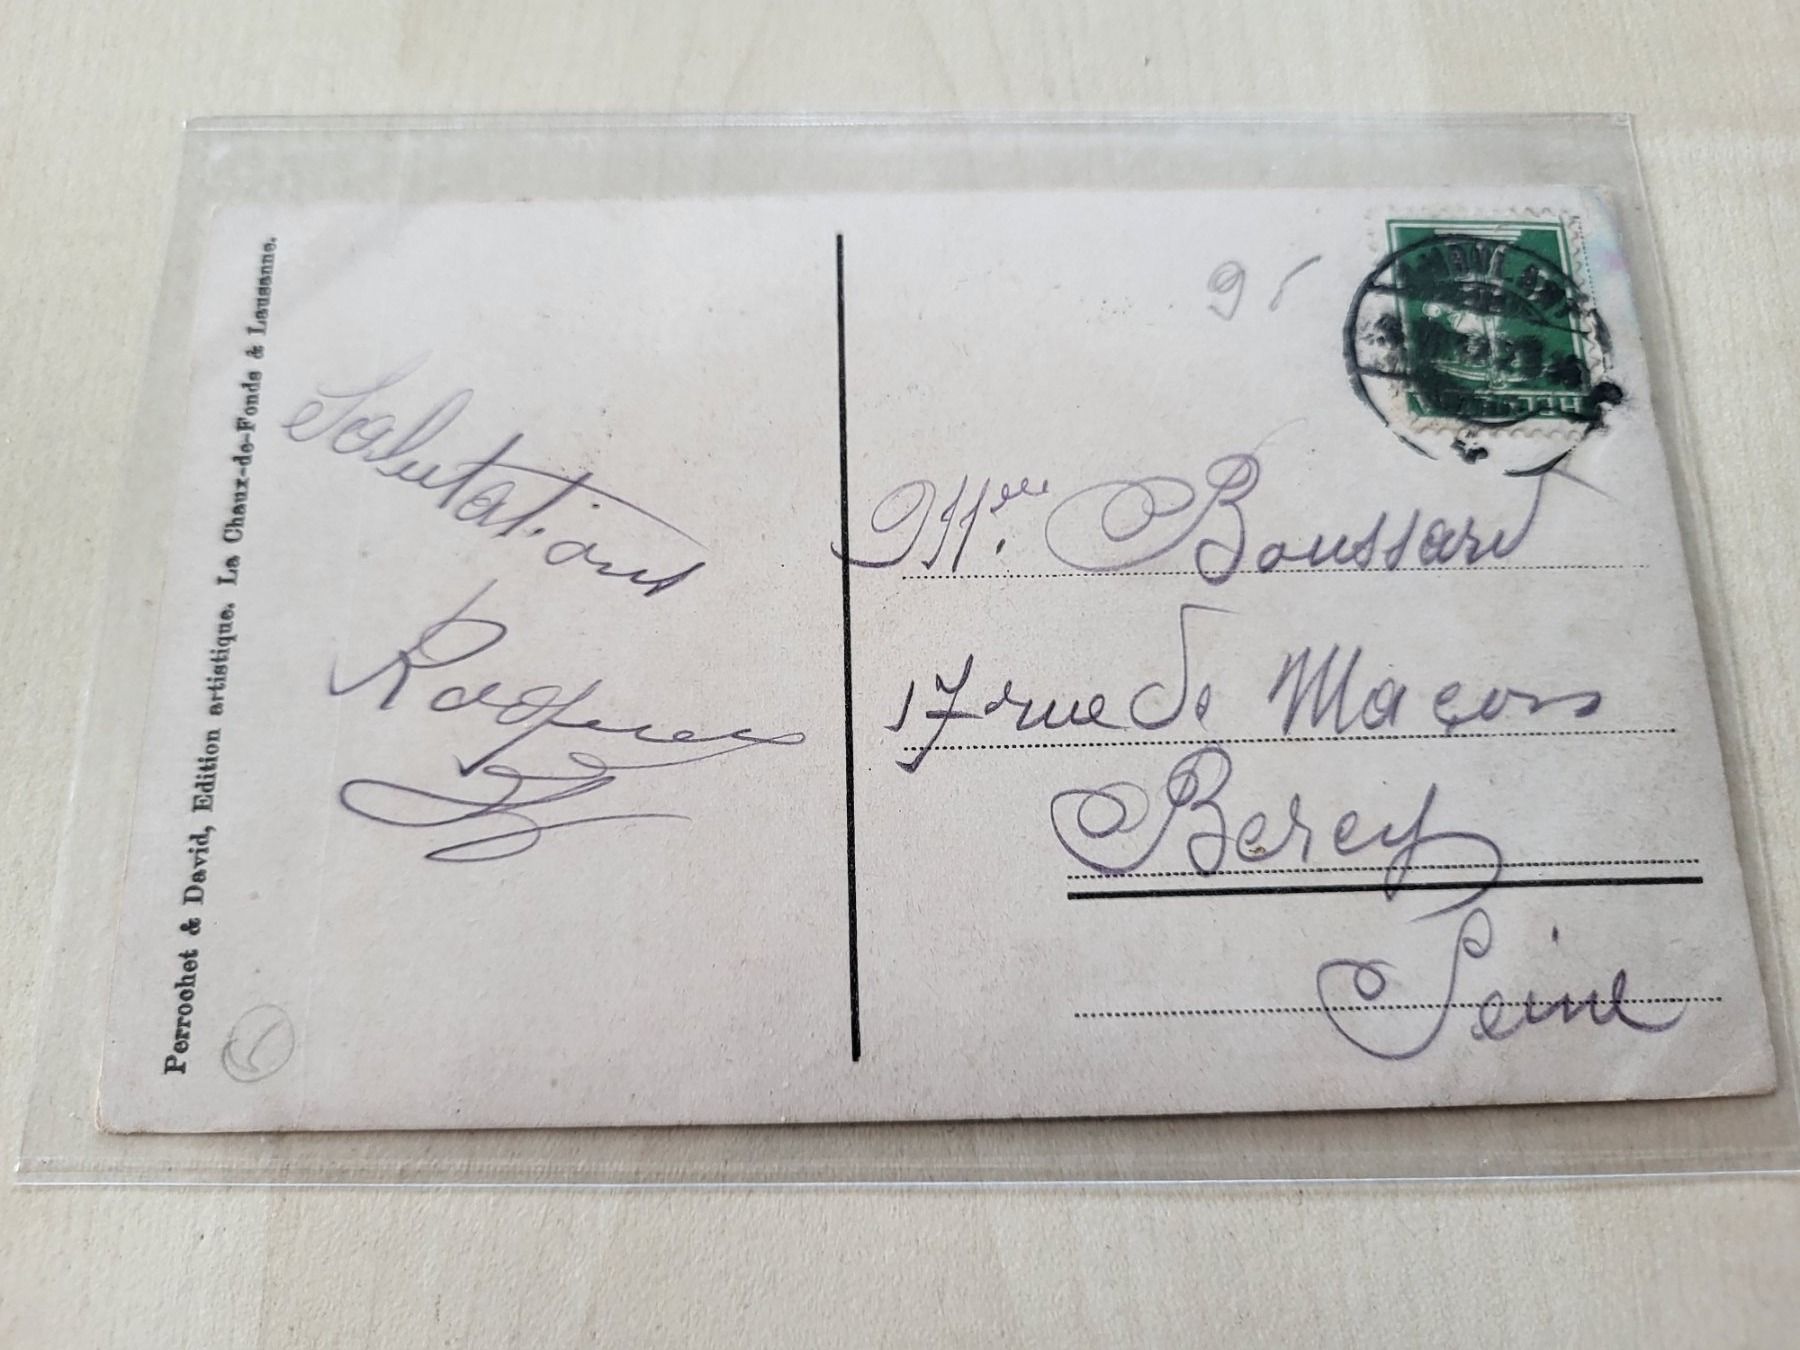 Perrochet & David, Edition artistique. La Chaux-de-Fonds & Lausanne.
Salutations
9
Mlle. Boussard
17 rue de Maçons
Bercy
Seine
5